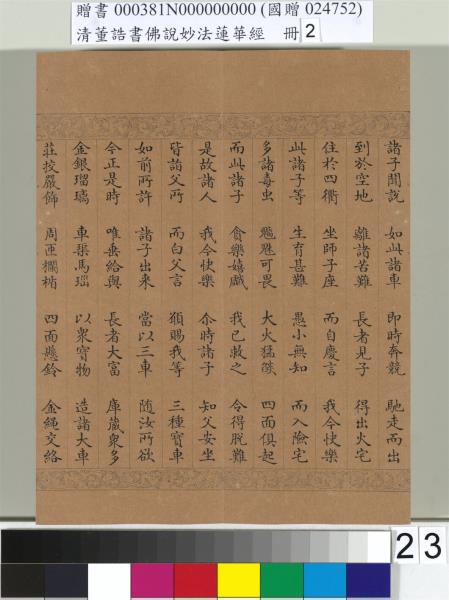 贈書 000381N000000000 (國贈 024752)
清董誥書佛說妙法蓮華經 冊 2
諸子聞說 如此諸車 即時奔競 馳走而出
到於空地 離諸苦難 長者見子 得出火宅
住於四衢 坐師子座 而自慶言 我今快樂
此諸子等 生育甚難 愚小無知 而入險宅
多諸毒虫 魑魅可畏 大火猛燄 四面俱起
而此諸子 貪樂嬉戲 我已救之 令得脫難
是故諸人 我今快樂 尒時諸子 知父安坐
皆詣父所 而白父言 願賜我等 三種寶車
如前所許 諸子出來 當以三車 随汝所欲
今正是時 唯垂給與 長者大富 庫藏眾多
金銀瑠璃 車𤦲馬瑙 以眾寶物 造諸大車
莊挍嚴飾 周匝攔楯 四面懸鈴 金繩交絡
23